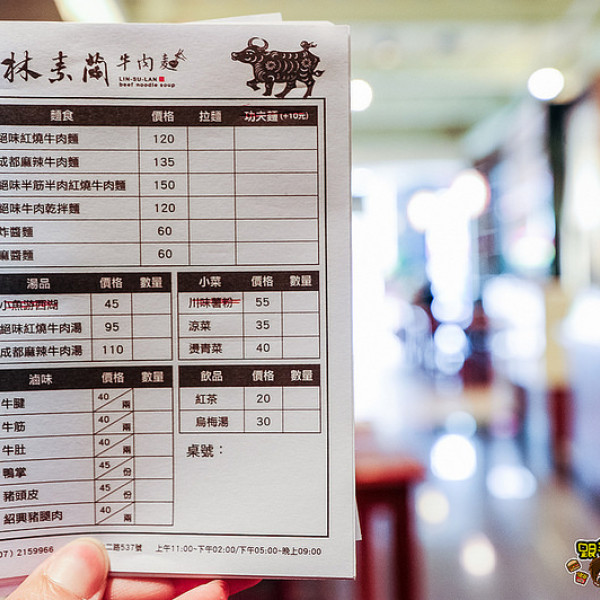 林素蘭 牛肉麵
LIN-SU-LAN
beef noodle soup
麵食 價格 拉麵 功夫麵(+10元)
絕味紅燒牛肉麵 120
成都麻辣牛肉麵 135
絕味半筋半肉紅燒牛肉麵 150
絕味牛肉乾拌麵 120
炸醬麵 60
麻醬麵 60
湯品 價格 數量
小魚游西湖 45
絕味紅燒牛肉湯 95
成都麻辣牛肉湯 110
小菜 價格 數量
川味薯粉 55
涼菜 35
燙青菜 40
滷味 價格 數量
牛腱 40/兩
牛筋 40/兩
牛肚 40/兩
鴨掌 45/份
豬頭皮 45/份
紹興豬腿肉 40/兩
飲品 價格 數量
紅茶 20
烏梅湯 30
桌號：
07) 2159966 二路537號 上午11:00~下午02:00/下午05:00~晚上09:00